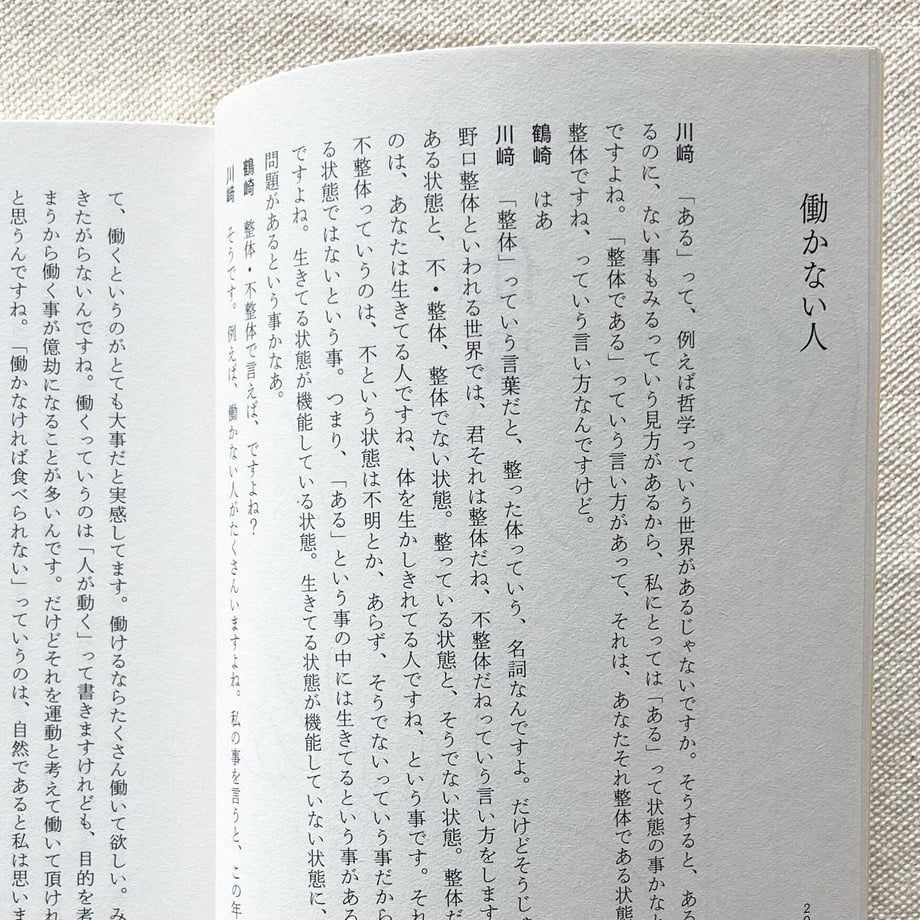 働かない人
川﨑　「ある」って、例えば哲学っていう世界があるじゃないですか。そうすると、ある
るのに、ない事もみるっていう見方があるから、私にとっては「ある」って状態の事かな
ですよね。「整体である」っていう言い方があって、それは、あなたそれ整体である状態
整体ですね、っていう言い方なんですけど。
鶴崎　はあ
川﨑　「整体」っていう言葉だと、整った体っていう、名詞なんですよ。だけどそうじゃ
野口整体といわれる世界では、君それは整体だね、不整体だねっていう言い方をします
ある状態と、不・整体、整体でない状態。整っている状態と、そうでない状態。整体だ
のは、あなたは生きてる人ですね、体を生かしきれてる人ですね、という事です。それ
不整体っていうのは、不という状態は不明とか、あらず、そうでないっていう事だから
る状態ではないという事。つまり、「ある」という事の中には生きてるという事がある
ですよね。生きてる状態が機能している状態。生きてる状態が機能していない状態に、
問題があるという事かなあ。
鶴崎　整体・不整体で言えば、ですよね？
川﨑　そうです。例えば、働かない人がたくさんいますよね。私の事を言うと、この年
て、働くというのがとても大事だと実感してます。働けるならたくさん働いて欲しい。み
きたがらないんですね。働くっていうのは「人が動く」って書きますけれども、目的を考
まうから働く事が億劫になることが多いんです。だけどそれを運動と考えて働いて頂けれ
と思うんですね。「働かなければ食べられない」っていうのは、自然であると私は思いま
20